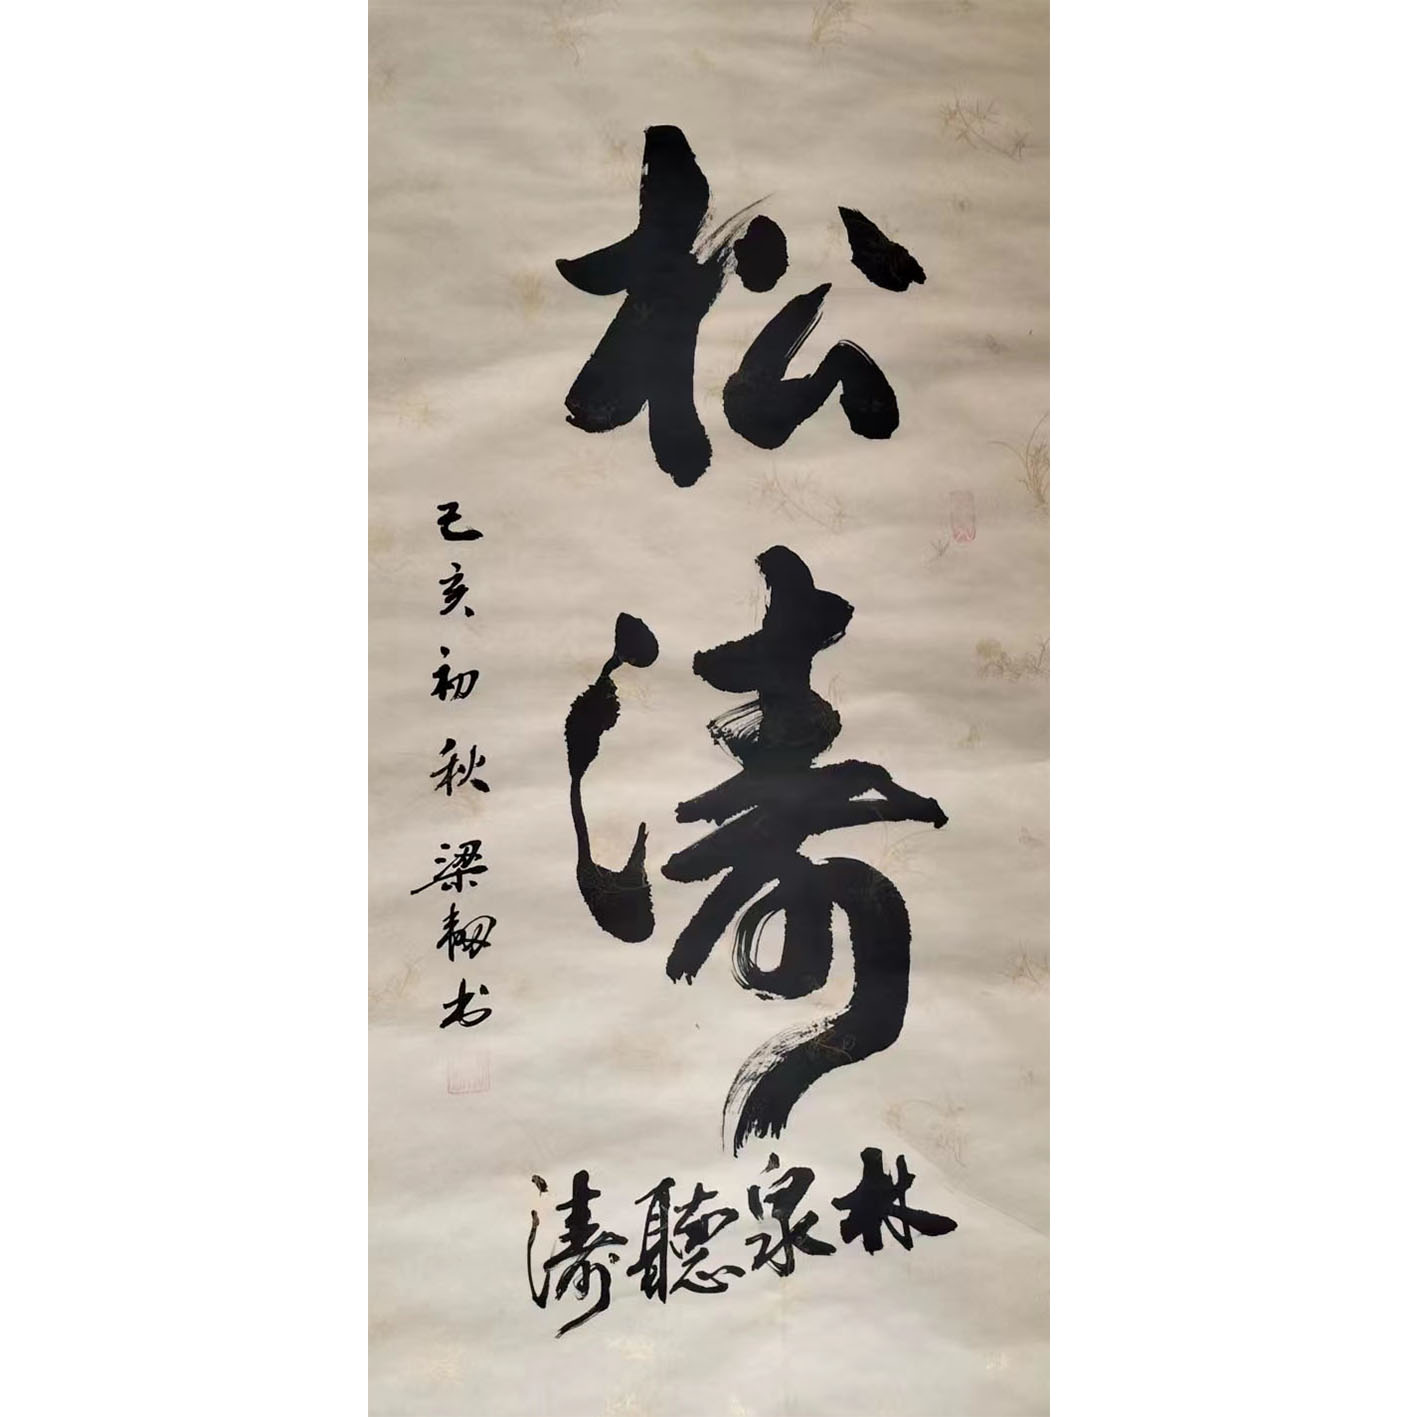 松濤
林泉聽濤
己亥初秋梁韌书